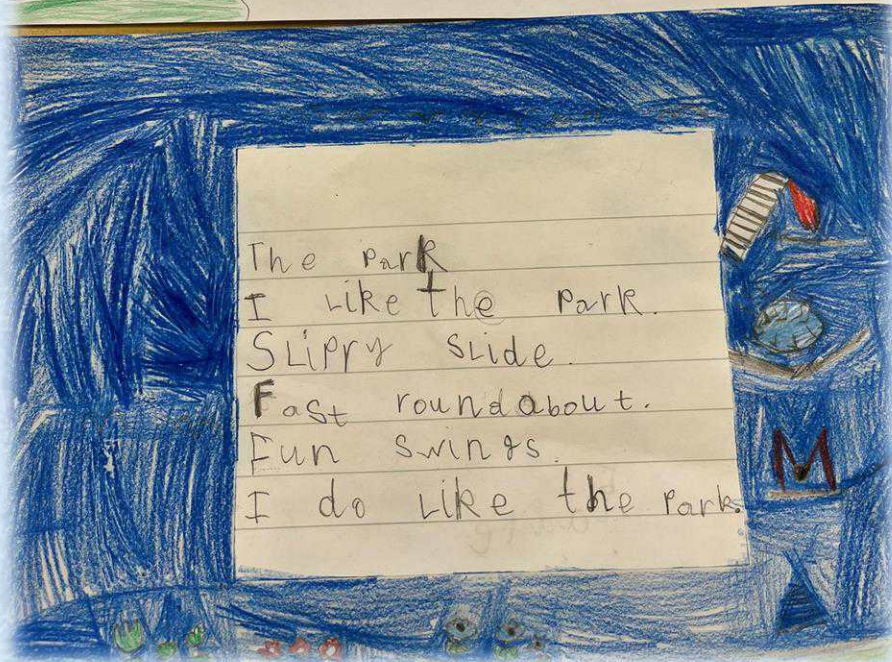 The park
I like the park.
Slippy slide.
Fast roundabout.
Fun swings.
I do like the park.
M